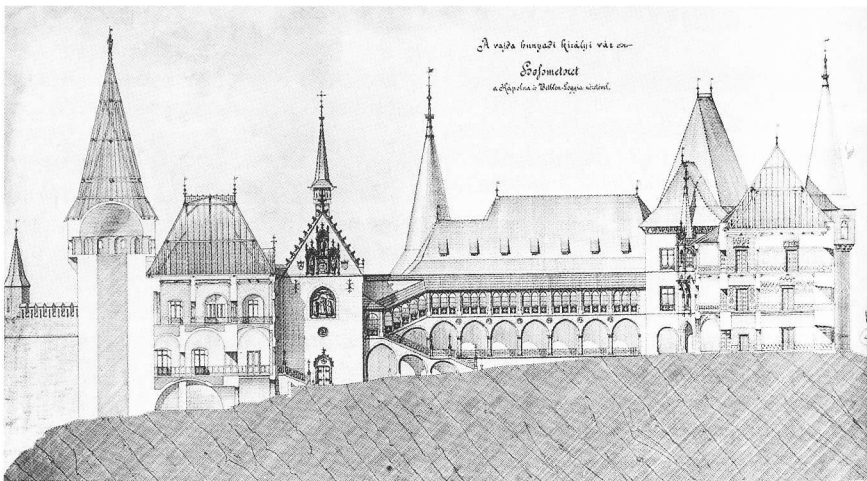 A vajda hunyadi királyi vár
Hossmetszet
a Kápolna és Bethlen-Loggia nézetével.